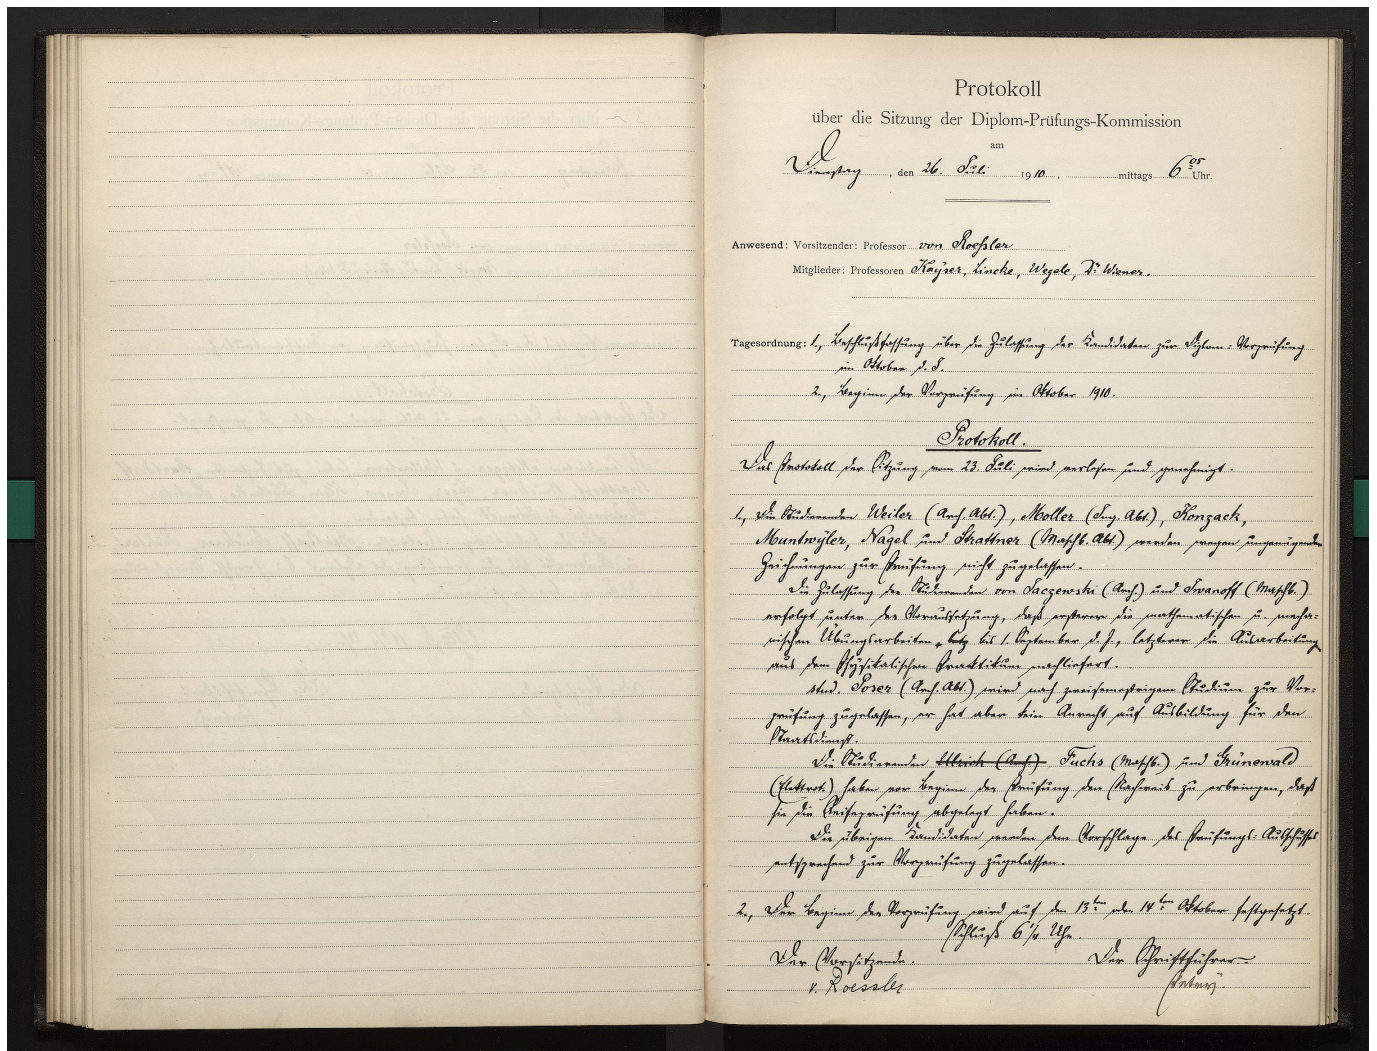 Protokoll
über die Sitzung der Diplom-Prüfungs-Kommission
am
Dienstag, den 26. Juli 1910, mittags 6 05 Uhr.
Anwesend: Vorsitzender: Professor von Roeßler
Mitglieder: Professoren Kayser, Lincke, Wegele, Dr. Wiener.
Tagesordnung: 1., Beschlußfassung über die Zulassung der Kandidaten zur Diplom-Vorprüfung
im Oktober d. J.
2., Beginn der Vorprüfung im Oktober 1910.
Protokoll.
Das Protokoll der Sitzung vom 23. Juli wird verlesen und genehmigt.
1., Die Studierenden Weiler (Arch. Abt.), Moller (Ing. Abt.), Konzack,
Muntwyler, Nagel und Strattner (Maschb. Abt.) werden wegen ungenügender
Zeichnungen zur Prüfung nicht zugelassen.
Die Zulassung der Studierenden von Jaczewski (Arch.) und Iwanoff (Maschb.)
erfolgt unter der Voraussetzung, daß ersterer die mathematischen u. mecha-
nischen Übungsarbeiten bis 1. September d. J., letzterer die Ausarbeitung
aus dem Physikalischen Praktikum nachliefert.
stud. Poser (Arch. Abt.) wird nach zweisemestrigem Studium zur Vor-
prüfung zugelassen, er hat aber kein Anrecht auf Ausbildung für den
Staatsdienst.
Die Studierenden Ullrich (Arch.) Fuchs (Maschb.) und Grünewald
(Elektrot.) haben vor Beginn der Prüfung den Nachweis zu erbringen, daß
sie die Reifeprüfung abgelegt haben.
Die übrigen Kandidaten werden dem Vorschlage des Prüfungs-Ausschusses
entsprechend zur Vorprüfung zugelassen.
2., Der Beginn der Vorprüfung wird auf den 13ten oder 14ten Oktober festgesetzt.
Schluß 6 1/4 Uhr.
Der Vorsitzende. Der Schriftführer
v. Roessler Petry.